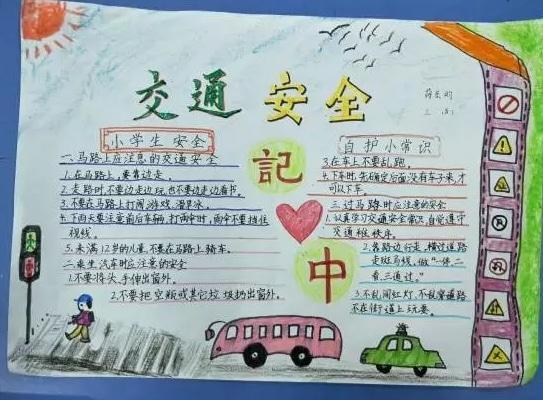 交通安全
小学生安全
一.马路上应注意的交通安全
1.在马路上,要靠边走.
2.走路时,不要边走边玩,也不要边走边看书.
3.不要在马路上打闹.游戏.溜旱冰.
4.下雨天要注意前后车辆,打雨伞时,雨伞不要挡住
视线.
5.未满12岁的儿童,不要在马路上骑车.
二.乘坐汽车时应注意的安全
1.不要将头,手伸出窗外.
2.不要把空瓶或其它垃圾扔出窗外.
記
中
自护小常识
3.在车上不要乱跑.
4.下车时,先确定后面没有车子来,才
可以下车.
三.过马路时应注意的安全
1.认真学习交通安全常识,自觉遵守
交通秩序.
2.靠路边行走,横过道路
走斑马线,做"一停二
看三通过."
3.不乱闯红灯,不乱穿道路
不在街道上玩耍.